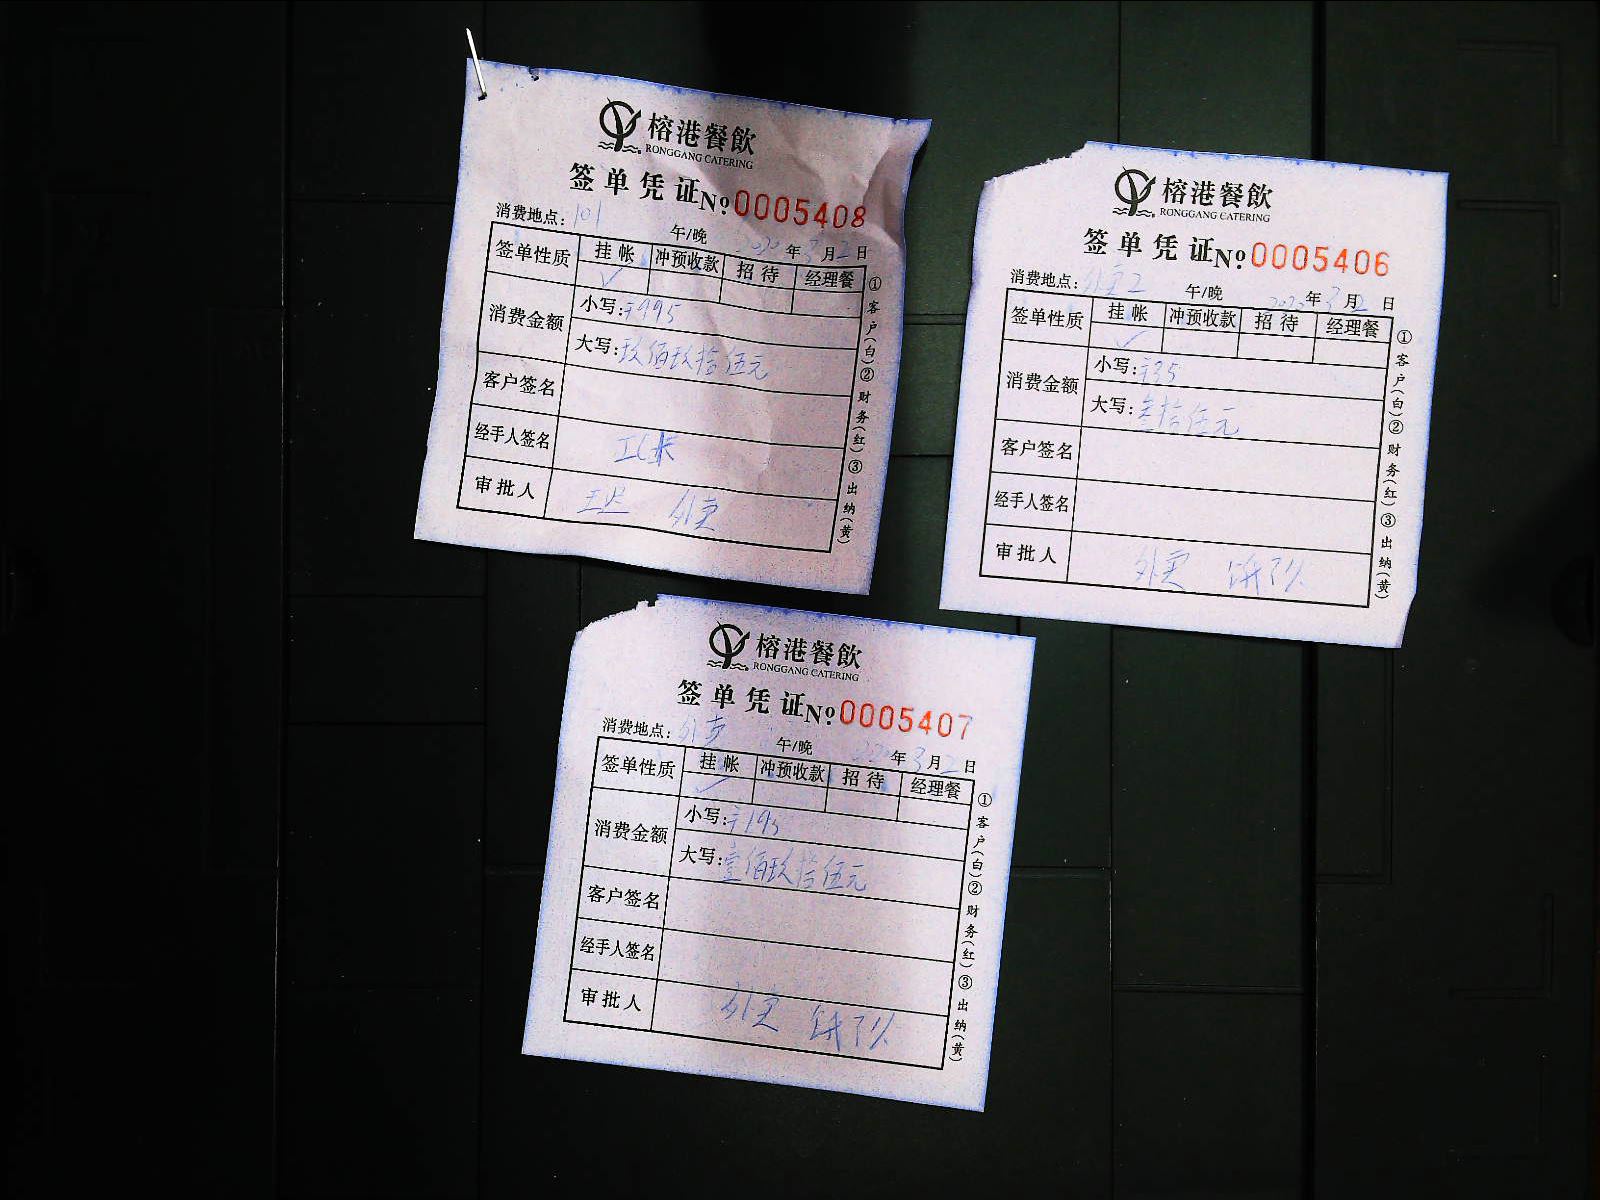 榕港餐飲
RONGGANG CATERING
签单凭证 №0005408
消费地点：101 午/晚 2020年3月2日
签单性质 挂帐 冲预收款 招待 经理餐
✓
消费金额 小写：¥995
大写：玖佰玖拾伍元
客户签名
经手人签名
审批人 外卖
①客户（白）②财务（红）③出纳（黄）
榕港餐飲
RONGGANG CATERING
签单凭证 №0005406
消费地点：外卖2 午/晚 2020年3月2日
签单性质 挂帐 冲预收款 招待 经理餐
✓
消费金额 小写：¥35
大写：叁拾伍元
客户签名
经手人签名
审批人 外卖 饿了么
①客户（白）②财务（红）③出纳（黄）
榕港餐飲
RONGGANG CATERING
签单凭证 №0005407
消费地点：外卖 午/晚 2020年3月2日
签单性质 挂帐 冲预收款 招待 经理餐
✓
消费金额 小写：¥195
大写：壹佰玖拾伍元
客户签名
经手人签名
审批人 外卖 饿了么
①客户（白）②财务（红）③出纳（黄）